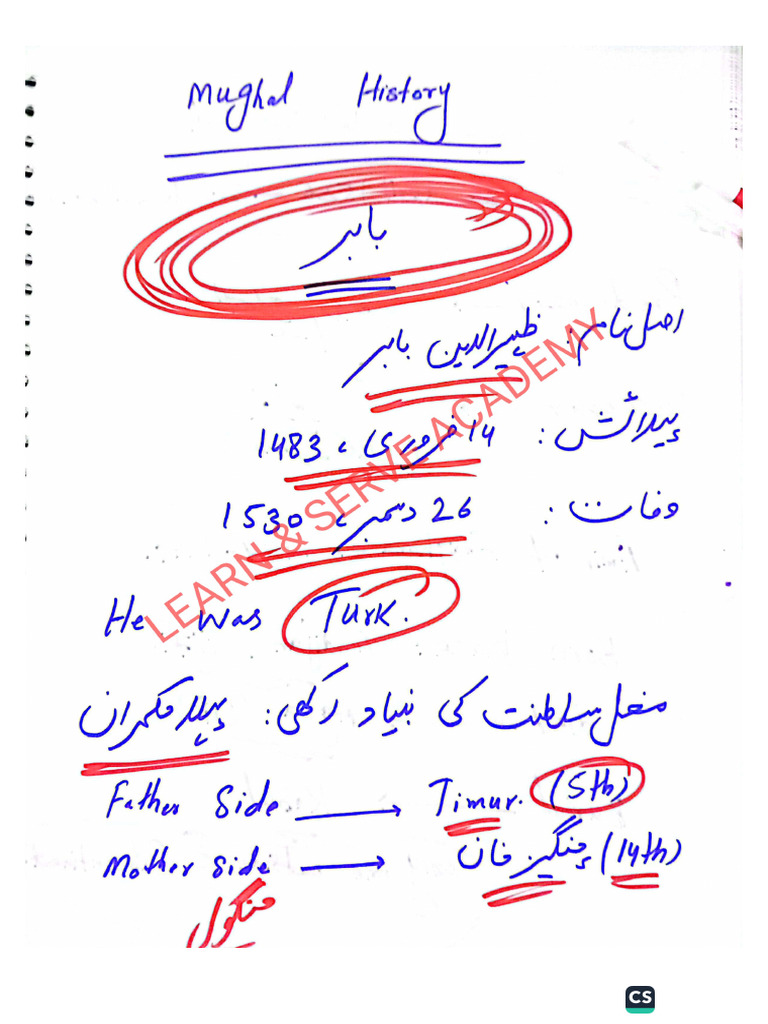 Mughal History
بابر
اصل نام: ظہیر الدین بابر
پیدائش: 14 فروری، 1483
وفات: 26 دسمبر، 1530
He was Turk.
مغل سلطنت کی بنیاد رکھی: پہلا حکمران
Father Side → Timur. (5th)
Mother side → چنگیز خان (14th)
منگول
LEARN & SERVE ACADEMY
CS